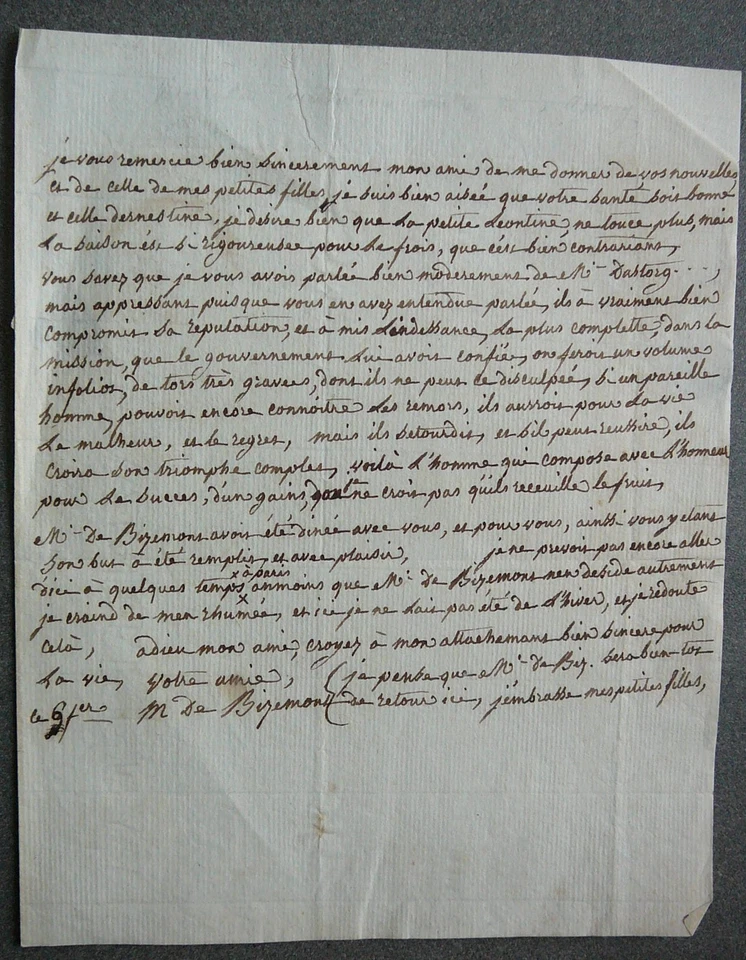 je vous remercie bien sincerement mon ami de me donner de vos nouvelles
et de celle de mes petites filles, je suis bien aiseé que votre santé soit bonne
et celle dernestine, je desire bien que La petite Leontine, ne touce plus, mais
La saison ést si rigoureusee pour Le frois, que cést bien contrariant,
vous savez que je vous avois parleé bien moderement de Mr Dastorg....,
mais appressant puisque vous en avez entendue parleé, ils à vraiment bien
compromit sa reputation, et à mis L'indessance, La plus complette, dans la
mission, que le gouvernement Lui avoit confiée, on feroit un volume
infolios, de tors très gravees, dont ils ne peut ce disculpeé, si un pareille
homme, pouvoit encore connôitre Les remors, ils aurroit pour La vie
Le malheur, et le regret, mais ils setourdit, et s'il peut reussire, ils
croira son triomphe complet, voilà L'homme qui compose avec L'honneur
pour Le succes, d'un gains, ne croit pas quils receuille Le fruit,
Mr De Bizemont avoit été dineé avec vous, et pour vous, ainssi vous y etant
son but à été remplit, et avec plaisir, je ne prevoit pas encore aller
à paris
dici à quelques temps x anmoins que Mr De Bizemont nen deside autrement
je craind de men rhumeé, et ice je ne sait pas été de L'hiver, et je redoute
celà, adieu mon ami, croyez à mon attachemant bien sincere pour
La vie, votre amie, (je pense que Mr de Biz. sera bien-tot
ce 6 fer M De Bizemont de retour ici, j'embrasse mes petites filles,